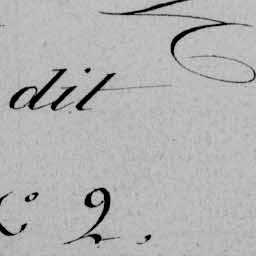 dit
c° 2.